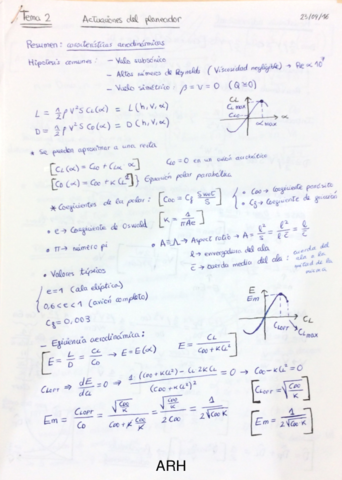 Tema 2 Actuaciones del planeador 23/09/16
Resumen: características aerodinámicas
Hipótesis comunes: - Vuelo subsónico
- Altos números de Reynolds (Viscosidad negligible) → Re ∝ 10
- Vuelo simétrico: β = V = 0 (Q≡0)
L = 1/2 ρ V² S C_L(α) = L(h, V, α)
D = 1/2 ρ V² S C_D(α) = D(h, V, α)
C_L
C_Lmax
C_L0
α
α max
* Se pueden aproximar a una recta
[C_L(α) = C_L0 + C_Lα α] C_L0 = 0 en un avión simétrico
[C_D(α) = C_D0 + K C_L²] Expansión polar parabólica
* Coeficientes de la polar: [C_D0 = C_f Swet/S] • C_D0 → Coeficiente parásito
• C_f → Coeficiente de fricción
• e → Coeficiente de Oswald [K = 1/πAe]
• π → número pi • A = Λ → Aspect ratio → A = b²/S = b²/b c̄ = b/c̄
b → envergadura del ala
c̄ → cuerda media del ala: cuerda del ala a la mitad de la misma
• Valores típicos
e ≈ 1 (ala elíptica)
0,6 < e < 1 (avión completo)
C_f ≈ 0,003
E
Em
C_Lopt
C_Lmax
- Eficiencia aerodinámica:
[E = L/D = C_L/C_D → E = E(α) E = C_L/(C_D0 + K C_L²)]
C_Lopt ⇒ dE/dC_L = 0 → (1·(C_D0 + K C_L²) - C_L 2K C_L)/(C_D0 + K C_L²)² = 0 → C_D0 - K C_L² = 0
[C_Lopt = √(C_D0/K)]
Em = C_Lopt/C_D = √(C_D0/K)/(C_D0 + K C_D0/K) = √(C_D0/K)/(2 C_D0) = 1/(2√(C_D0 K)) [Em = 1/(2√(C_D0 K))]
ARH